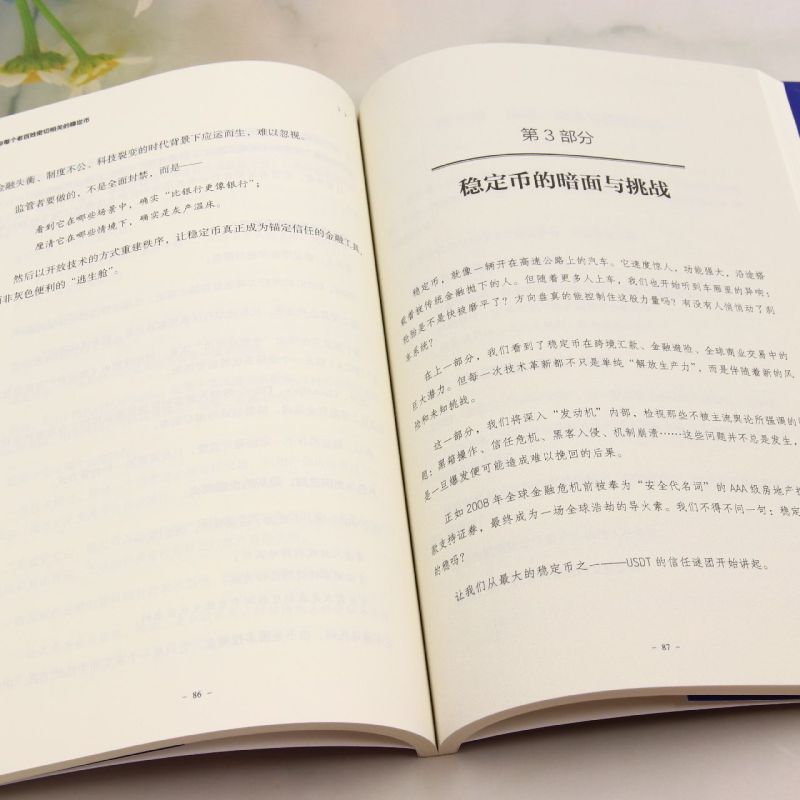 每个老百姓密切相关的稳定币
金融失衡、制度不公、科技裂变的时代背景下应运而生，难以忽视。
监管者要做的，不是全面封禁，而是——
看到它在哪些场景中，确实“比银行更像银行”；
厘清它在哪些情境下，确实是灰产温床。
然后以开放技术的方式重建秩序，让稳定币真正成为锚定信任的金融工具，
而非灰色便利的“逃生舱”。
- 86 -
第 3 部分
稳定币的暗面与挑战
稳定币，就像一辆开在高速公路上的汽车。它速度惊人，功能强大，沿途搭
载着被传统金融抛下的人。但随着更多人上车，我们也开始听到车厢里的异响：
轮胎是不是快被磨平了？方向盘真的能控制住这股力量吗？有没有人悄悄动了刹
车系统？
在上一部分，我们看到了稳定币在跨境汇款、金融避险、全球商业交易中的
巨大潜力。但每一次技术革新都不只是单纯“解放生产力”，而是伴随着新的风
险和未知挑战。
这一部分，我们将深入“发动机”内部，检视那些不被主流舆论所强调的问
题：黑箱操作、信任危机、黑客入侵、机制崩溃……这些问题并不总是发生，
是一旦爆发便可能造成难以挽回的后果。
正如 2008 年全球金融危机前被奉为“安全代名词”的 AAA 级房地产抵
款支持证券，最终成为一场全球浩劫的导火索。我们不得不问一句：稳定
的稳吗？
让我们从最大的稳定币之一——USDT 的信任谜团开始讲起。
- 87 -